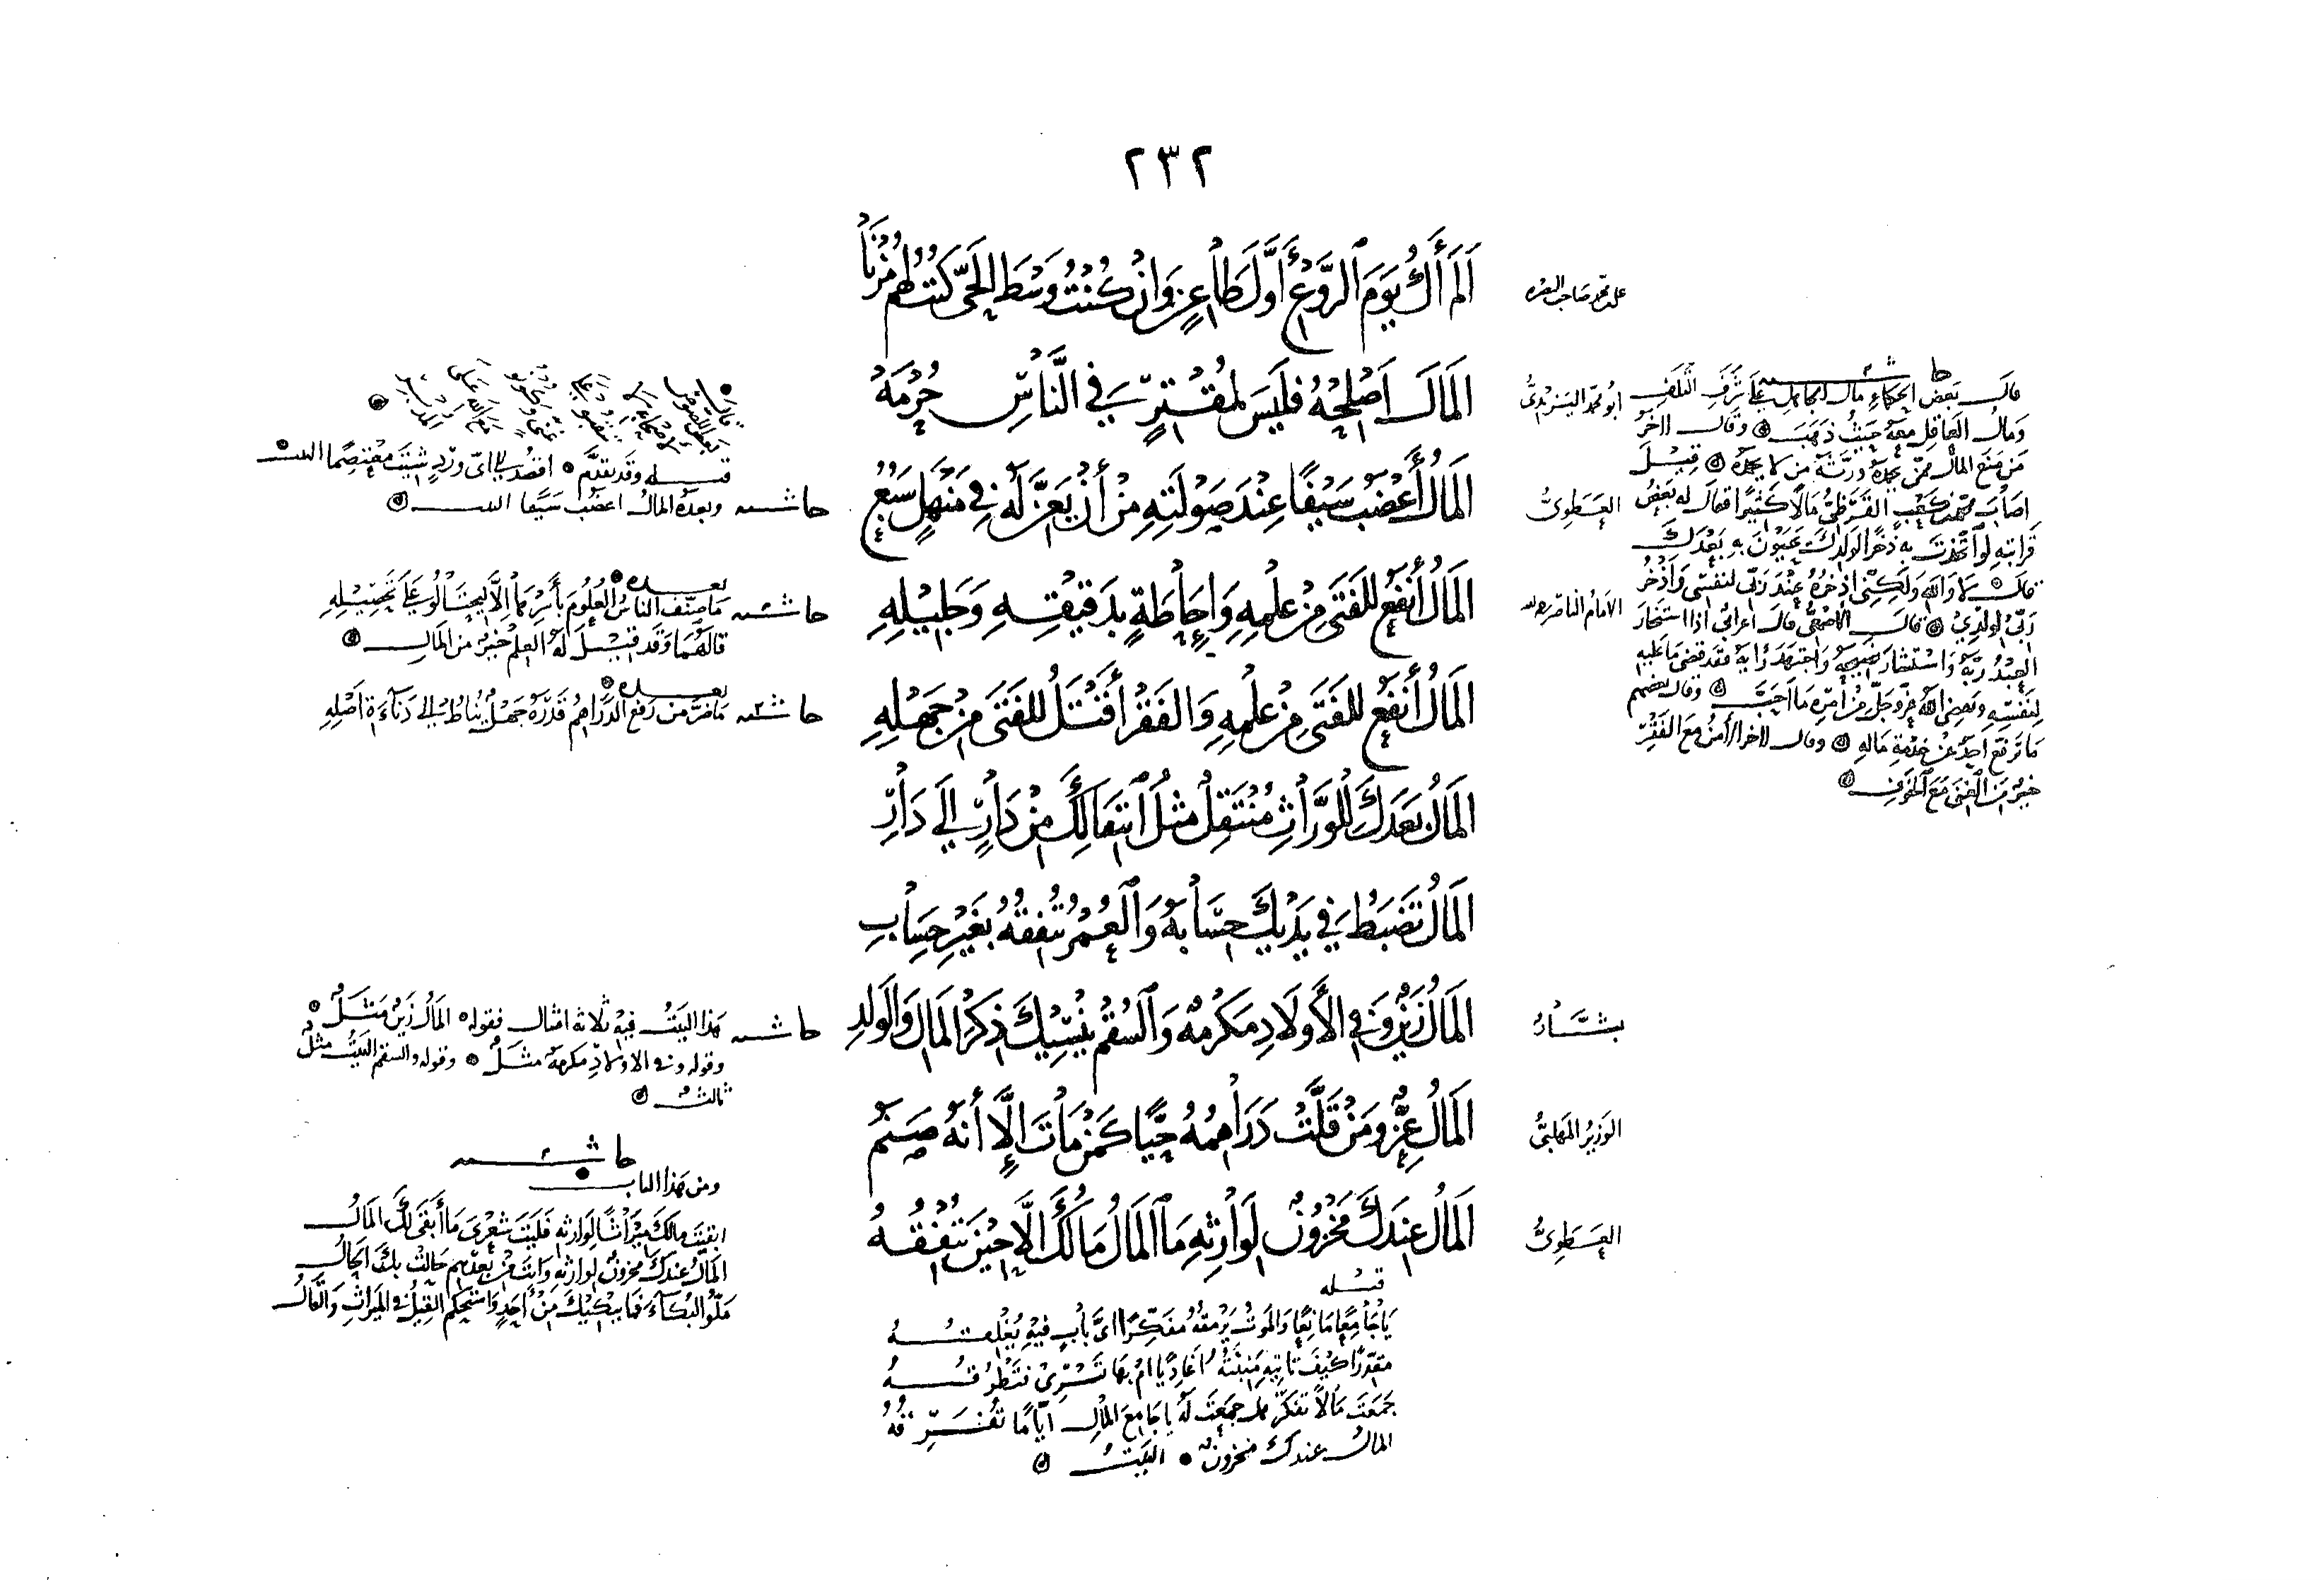 ٢٣٢
أَلَمْ أَكُ يَوْمَ الرَّوْعِ أَوَّلَ طَاعِنٍ وَإِنْ كُنْتُ وَسْطَ الحَيِّ كُنْتُ لَهُمْ مُزْنَا
المَالَ أَصْلِحْهُ فَلَيْسَ لِمُقْتِرٍ فِي النَّاسِ حُرْمَهْ
أبو محمد اليزيدي
المَالُ أَعْضَبُ سَيْفًا عِنْدَ صَوْلَتِهِ مِنْ أَنْ يَعِزَّ لَهُ فِي مَنْهَلٍ سَبُعُ
العَطَوِيُّ
المَالُ أَنْفَعُ لِلْفَتَى مِنْ عِلْمِهِ وَإِحَاطَةٍ بِدَقِيقِهِ وَجَلِيلِهِ
الإمام الناصر
المَالُ أَنْفَعُ لِلْفَتَى مِنْ عِلْمِهِ وَالفَقْرُ أَقْتَلُ لِلْفَتَى مِنْ جَهْلِهِ
المَالُ بَعْدَكَ لِلْوُرَّاثِ مُنْتَقِلٌ مِثْلُ انْتِقَالِكَ مِنْ دَارٍ إِلَى دَارِ
المَالُ تَضْبِطُ فِي يَدَيْكَ حِسَابَهُ وَالعُمْرُ تُنْفِقُهُ بِغَيْرِ حِسَابِ
المَالُ زَيْنٌ وَفِي الأَوْلَادِ مَكْرُمَةٌ وَالسُّقْمُ يُنْسِيكَ ذِكْرَ المَالِ وَالوَلَدِ
بشَّارُ
المَالُ عِزٌّ وَمَنْ قَلَّتْ دَرَاهِمُهُ حَيًّا كَمَنْ مَاتَ إِلَّا أَنَّهُ صَنَمُ
الوَزِيرُ المُهَلَّبِيُّ
المَالُ عِنْدَكَ مَخْزُونٌ لِوَارِثِهِ مَا المَالُ مَالُكَ إِلَّا حِينَ تُنْفِقُهُ
العَطَوِيُّ
قبله
يَا جَامِعًا مَانِعًا وَالمَوْتُ يَرْمُقُهُ مُفَكِّرًا أَيَّ بَابٍ فِيهِ يُغْلِقُهُ
كَيْفَ تَأْتِيهِ مَنِيَّتُهُ أَغَادِيًا أَمْ بِهَا تَسْرِي فَتَطْرُقُهُ
جَمَعْتَ مَالًا تَفَكَّرْ هَلْ جَمَعْتَ لَهُ يَا جَامِعَ المَالِ أَيَّامًا تُفَرِّقُهُ
المَالُ عِنْدَكَ مَخْزُونٌ • البَيْتُ
حاشية
قَالَ بَعْضُ الحُكَمَاءِ مَالُ الجَاهِلِ عَلَى شَرَفِ التَّلَفِ
وَمَالُ العَاقِلِ مَعَهُ حَيْثُ ذَهَبَ وَقَالَ آخَرُ
مَنْ مَنَعَ المَالَ مِمَّنْ يَحْمَدُهُ وَرَّثَهُ مَنْ لَا يَحْمَدُهُ قِيلَ
أَصَابَ مُحَمَّدُ بْنُ كَعْبٍ القُرَظِيُّ مَالًا كَثِيرًا فَقَالَ لَهُ بَعْضُ
قَرَابَتِهِ لَوِ اتَّخَذْتَ بِهِ ذُخْرًا لِوَلَدِكَ بِهِ بَعْدَكَ
قَالَ لَا وَاللَّهِ وَلَكِنِّي أَذْخَرُهُ عِنْدَ رَبِّي لِنَفْسِي وَأَذْخَرُ
رَبِّي لِوَلَدِي قَالَ الأَصْمَعِيُّ قَالَ أَعْرَابِيٌّ إِذَا اسْتَخَارَ
العَبْدُ رَبَّهُ وَاسْتَشَارَ نَصِيحَهُ وَاجْتَهَدَ رَأْيَهُ فَقَدْ قَضَى مَا عَلَيْهِ
لِنَفْسِهِ وَيَقْضِي اللَّهُ عَزَّ وَجَلَّ مِنْ أَمْرِهِ مَا أَحَبَّ وَقَالَ بَعْضُهُمْ
مَا تَرَفَّعَ أَحَدٌ عَنْ خِدْمَةِ مَالِهِ وَقَالَ آخَرُ الأَمْنُ مَعَ الفَقْرِ
خَيْرٌ مِنَ الغِنَى مَعَ الخَوْفِ
قبله وقد تقدم • اقصد لأي ورد شئت معتصمًا البيت
حاشية وبعده المال أعضب سيفًا البيت
حاشية بعده
مَا صَنَّفَ النَّاسُ العُلُومَ بِأَسْرِهَا إِلَّا لِيَحْتَالُوا عَلَى تَحْصِيلِهِ
قَالَهُمَا وَقَدْ قِيلَ لَهُ العِلْمُ خَيْرٌ مِنَ المَالِ
حاشية بعده
مَا ضَرَّ مَنْ رَفَعَ الدَّرَاهِمُ قَدْرَهُ جَهْلٌ يُنَاطُ إِلَى دَنَاءَةِ أَصْلِهِ
حاشية هَذَا البَيْتُ فِيهِ ثَلَاثَةُ أَمْثَالٍ فَقَوْلُهُ المَالُ زَيْنٌ مَثَلٌ
وقوله وفي الأولاد مكرمة مَثَلٌ وقوله والسقم البَيْتُ مثل
ثالث
حاشية
ومن هذا الباب
أَبْقَيْتَ مَالَكَ مِيرَاثًا لِوَارِثِهِ فَلَيْتَ شِعْرِيَ مَا أَبْقَى لَكَ المَالُ
المَالُ عِنْدَكَ مَخْزُونٌ لِوَارِثِهِ وَأَنْتَ مِنْ بَعْدِهِمْ حَالَتْ بِكَ الحَالُ
مَلُّوا البُكَاءَ فَمَا يَبْكِيكَ مِنْ أَحَدٍ وَاسْتَحْكَمَ القِيلُ فِي المِيرَاثِ وَالقَالُ